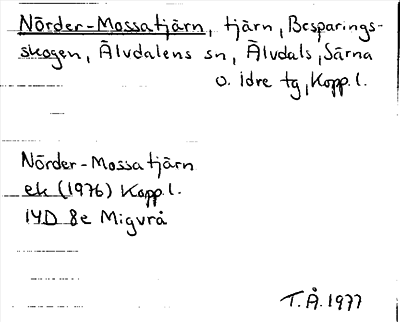 Nörder-Mossatjärn, tjärn, Besparings-
skogen, Älvdalens sn, Älvdals, Särna
o. Idre tg, Kopp. l.
Nörder-Mossatjärn
ek (1976) Kopp. l.
14D 8e Migvrå
T.Å. 1977